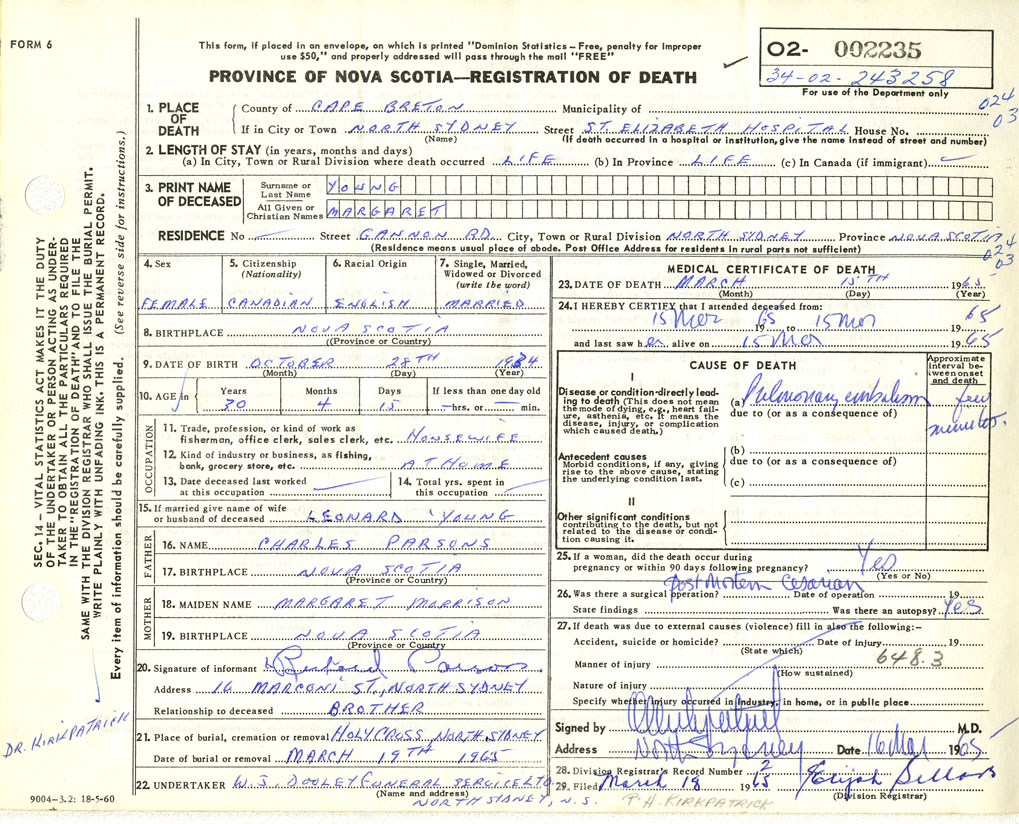 FORM 6
This form, if placed in an envelope, on which is printed "Dominion Statistics – Free, penalty for improper
use $50," and properly addressed will pass through the mail "FREE"
PROVINCE OF NOVA SCOTIA—REGISTRATION OF DEATH
02- 002235
34-02-243258
For use of the Department only
024
03
1. PLACE OF DEATH
County of CAPE BRETON Municipality of
If in City or Town NORTH SYDNEY Street ST. ELIZABETH HOSPITAL House No.
(Name) (If death occurred in a hospital or institution, give the name instead of street and number)
2. LENGTH OF STAY (in years, months and days)
(a) In City, Town or Rural Division where death occurred LIFE (b) In Province LIFE (c) In Canada (if immigrant)
3. PRINT NAME OF DECEASED
Surname or Last Name YOUNG
All Given or Christian Names MARGARET
RESIDENCE No Street GANNON RD. City, Town or Rural Division NORTH SYDNEY Province NOVA SCOTIA
(Residence means usual place of abode. Post Office Address for residents in rural parts not sufficient)
024
03
4. Sex
FEMALE
5. Citizenship
(Nationality)
CANADIAN
6. Racial Origin
ENGLISH
7. Single, Married,
Widowed or Divorced
(write the word)
MARRIED
8. BIRTHPLACE NOVA SCOTIA
((Province or Country)
9. DATE OF BIRTH OCTOBER 28TH 1934
(Month) (Day) (Year)
10. AGE in
Years Months Days If less than one day old
30 4 15 hrs. or min.
OCCUPATION
11. Trade, profession, or kind of work as
fisherman, office clerk, sales clerk, etc. HOUSEWIFE
12. Kind of industry or business, as fishing,
bank, grocery store, etc. AT HOME
13. Date deceased last worked
at this occupation
14. Total yrs. spent in
this occupation
15. If married give name of wife
or husband of deceased LEONARD YOUNG
FATHER
16. NAME CHARLES PARSONS
17. BIRTHPLACE NOVA SCOTIA
(Province or Country)
MOTHER
18. MAIDEN NAME MARGARET MORRISON
19. BIRTHPLACE NOVA SCOTIA
(Province or Country)
20. Signature of informant Parsons
Address 16 MARCONI ST., NORTH SYDNEY
Relationship to deceased BROTHER
21. Place of burial, cremation or removal HOLY CROSS NORTH SYDNEY
Date of burial or removal MARCH 19TH 1965
22. UNDERTAKER W. J. DOOLEY FUNERAL SERVICE LTD
(Name and address)
NORTH SYDNEY, N.S.
MEDICAL CERTIFICATE OF DEATH
23. DATE OF DEATH MARCH 15TH 1965
(Month) (Day) (Year)
24. I HEREBY CERTIFY that I attended deceased from:
15 Mar 1965 to 15 Mar 1965
and last saw her alive on 15 Mar 1965
CAUSE OF DEATH
Approximate
interval be-
tween onset
and death
I
Disease or condition directly lead-
ing to death (This does not mean
the mode of dying, e.g., heart fail-
ure, asthenia, etc. It means the
disease, injury, or complication
which caused death.)
(a) Pulmonary embolism few minutes.
due to (or as a consequence of)
Antecedent causes
Morbid conditions, if any, giving
rise to the above cause, stating
the underlying condition last.
(b)
due to (or as a consequence of)
(c)
II
Other significant conditions
contributing to the death, but not
related to the disease or condi-
tion causing it.
25. If a woman, did the death occur during
pregnancy or within 90 days following pregnancy? Yes
(Yes or No)
Post Mortem Cesarian
26. Was there a surgical operation? Date of operation 19
State findings Was there an autopsy? Yes
27. If death was due to external causes (violence) fill in also the following:–
Accident, suicide or homicide? Date of injury 19
(State which)
648.3
Manner of injury
(How sustained)
Nature of injury
Specify whether injury occurred in Industry, in home, or in public place
Signed by M.D.
Address North Sydney Date 16 Mar 1965
28. Division Registrar's Record Number 2
29. Filed March 18 1965 Elijah Sellars
(Division Registrar)
P.H. KIRKPATRICK
SEC. 14 – VITAL STATISTICS ACT MAKES IT THE DUTY
OF THE UNDERTAKER OR PERSON ACTING AS UNDER-
TAKER TO OBTAIN ALL THE PARTICULARS REQUIRED
IN THE "REGISTRATION OF DEATH" AND TO FILE THE
SAME WITH THE DIVISION REGISTRAR WHO SHALL ISSUE THE BURIAL PERMIT.
WRITE PLAINLY WITH UNFADING INK. THIS IS A PERMANENT RECORD.
Every item of information should be carefully supplied. (See reverse side for instructions.)
DR. KIRKPATRICK
9004–3.2: 18-5-60